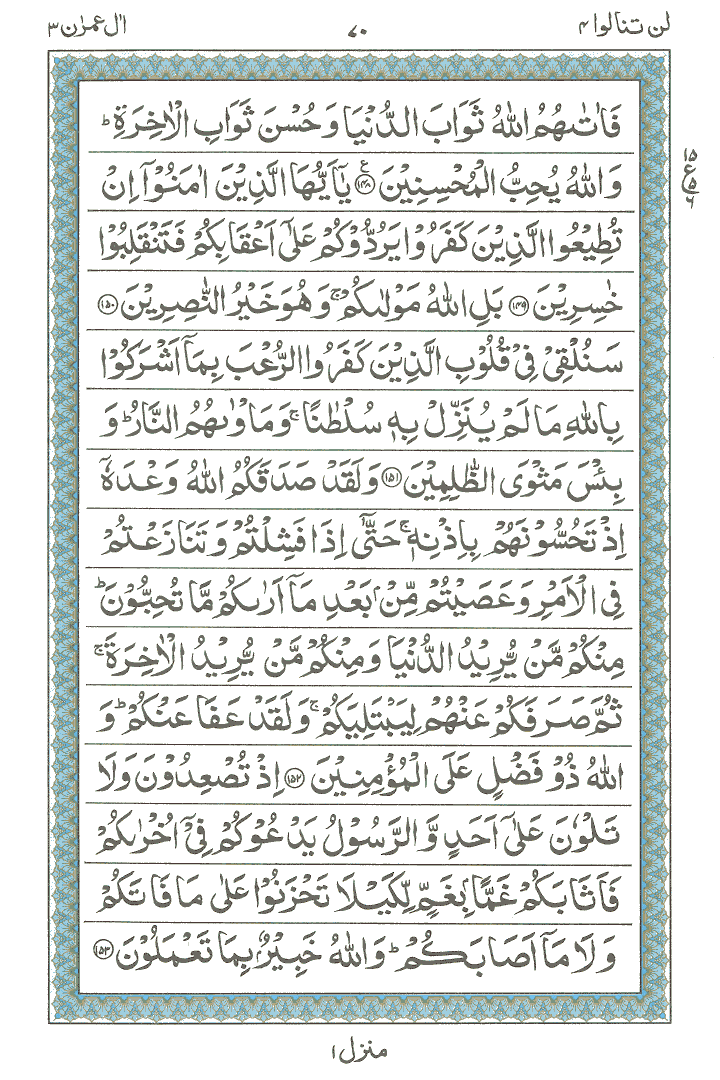 لن تنالوا ۴ ۷۰ اٰل عمرٰن ۳
فَاٰتٰىهُمُ اللّٰهُ ثَوَابَ الدُّنْيَا وَحُسْنَ ثَوَابِ الْاٰخِرَةِ ؕ
وَاللّٰهُ يُحِبُّ الْمُحْسِنِيْنَ ﴿۱۴۸﴾ ع يٰۤاَيُّهَا الَّذِيْنَ اٰمَنُوْۤا اِنْ
۱۵ ع ۵ ۶
تُطِيْعُوا الَّذِيْنَ كَفَرُوْا يَرُدُّوْكُمْ عَلٰۤى اَعْقَابِكُمْ فَتَنْقَلِبُوْا
خٰسِرِيْنَ ﴿۱۴۹﴾ بَلِ اللّٰهُ مَوْلٰىكُمْ ۚ وَهُوَ خَيْرُ النّٰصِرِيْنَ ﴿۱۵۰﴾
سَنُلْقِيْ فِيْ قُلُوْبِ الَّذِيْنَ كَفَرُوا الرُّعْبَ بِمَاۤ اَشْرَكُوْا
بِاللّٰهِ مَا لَمْ يُنَزِّلْ بِهٖ سُلْطٰنًا ۚ وَمَاْوٰىهُمُ النَّارُ ؕ وَ
بِئْسَ مَثْوَى الظّٰلِمِيْنَ ﴿۱۵۱﴾ وَلَقَدْ صَدَقَكُمُ اللّٰهُ وَعْدَهٗۤ
اِذْ تَحُسُّوْنَهُمْ بِاِذْنِهٖ ۚ حَتّٰۤى اِذَا فَشِلْتُمْ وَتَنَازَعْتُمْ
فِي الْاَمْرِ وَعَصَيْتُمْ مِّنْۢ بَعْدِ مَاۤ اَرٰىكُمْ مَّا تُحِبُّوْنَ ؕ
مِنْكُمْ مَّنْ يُّرِيْدُ الدُّنْيَا وَمِنْكُمْ مَّنْ يُّرِيْدُ الْاٰخِرَةَ ۚ
ثُمَّ صَرَفَكُمْ عَنْهُمْ لِيَبْتَلِيَكُمْ ۚ وَلَقَدْ عَفَا عَنْكُمْ ؕ وَ
اللّٰهُ ذُوْ فَضْلٍ عَلَى الْمُؤْمِنِيْنَ ﴿۱۵۲﴾ اِذْ تُصْعِدُوْنَ وَلَا
تَلْوٗنَ عَلٰۤى اَحَدٍ وَّالرَّسُوْلُ يَدْعُوْكُمْ فِيْۤ اُخْرٰىكُمْ
فَاَثَابَكُمْ غَمًّاۢ بِغَمٍّ لِّكَيْلَا تَحْزَنُوْا عَلٰى مَا فَاتَكُمْ
وَلَا مَاۤ اَصَابَكُمْ ؕ وَاللّٰهُ خَبِيْرٌۢ بِمَا تَعْمَلُوْنَ ﴿۱۵۳﴾
منزل ۱